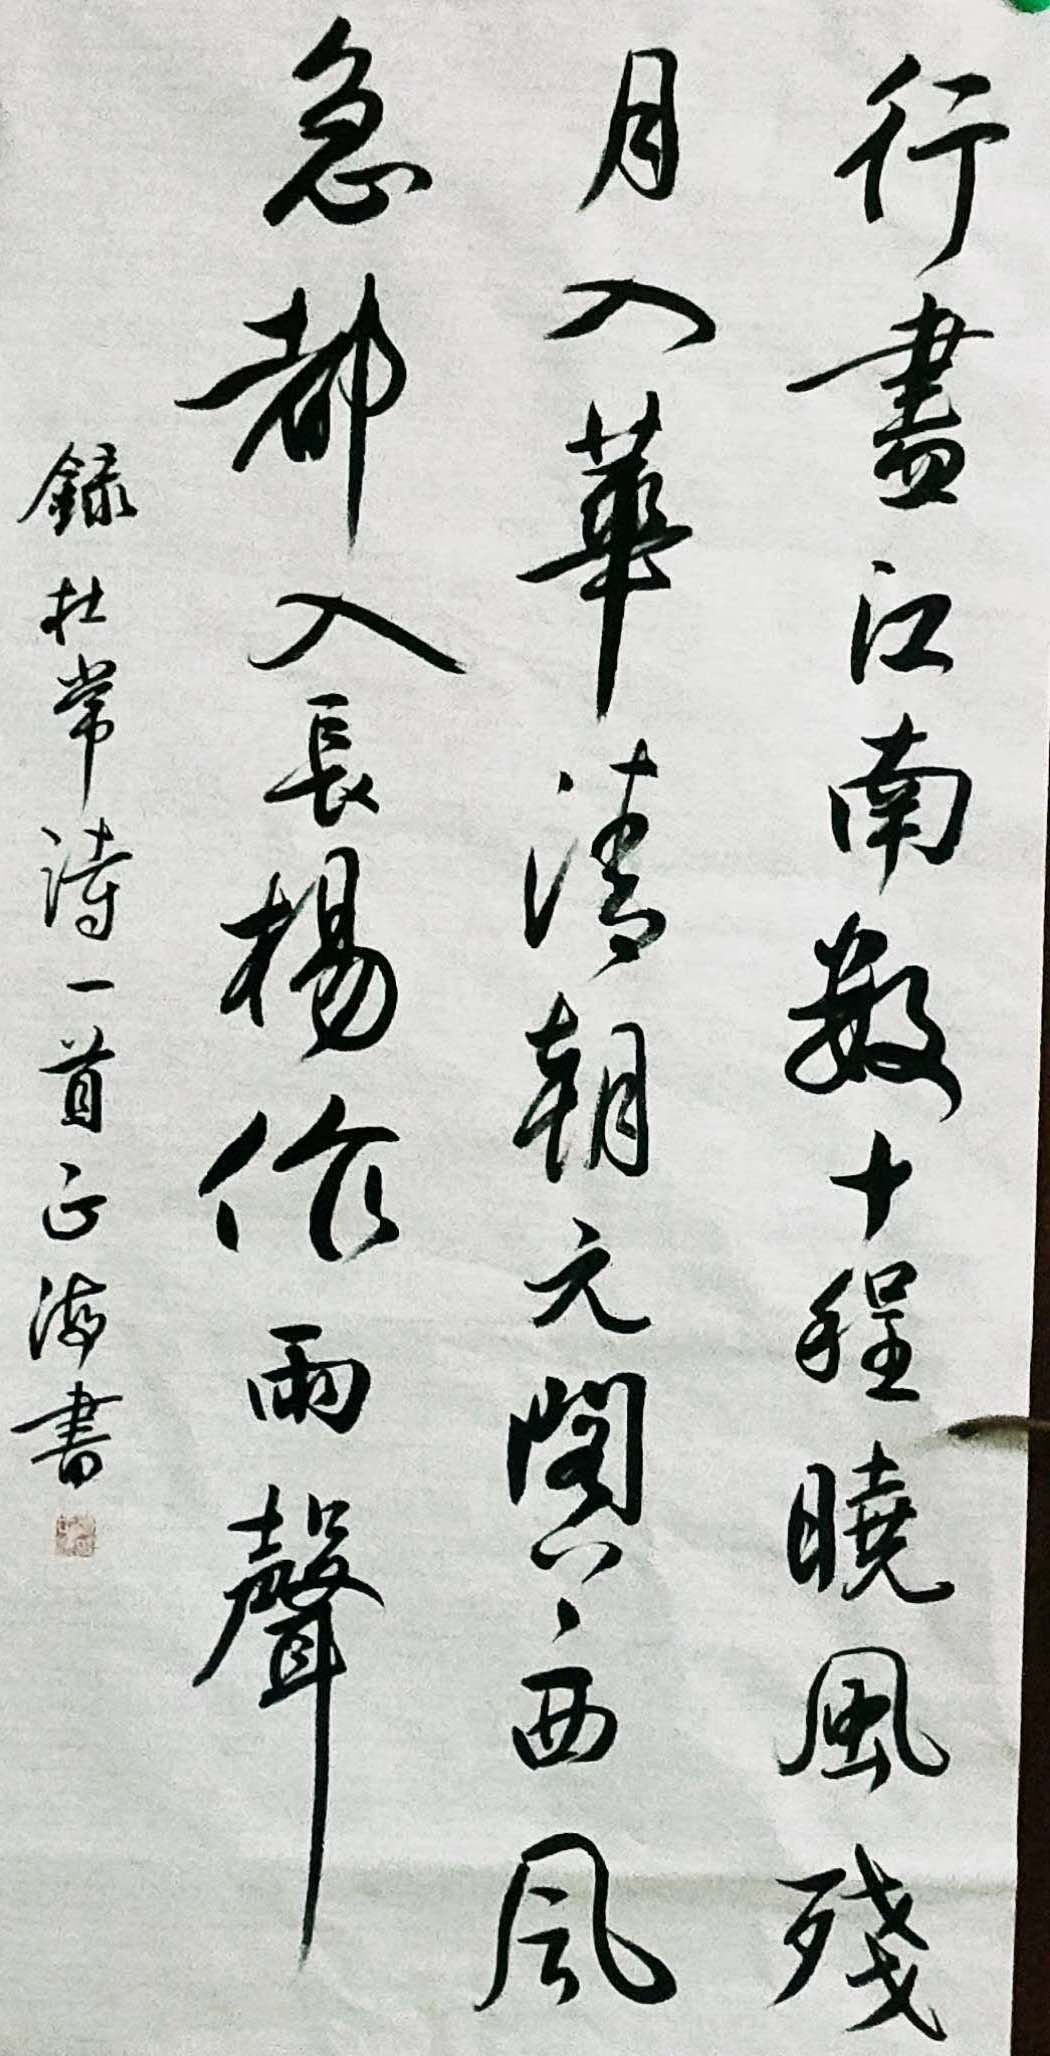 行盡江南數十程曉風殘
月入華清朝元閣上西風
急都入長楊作雨聲
錄杜常詩一首正海書